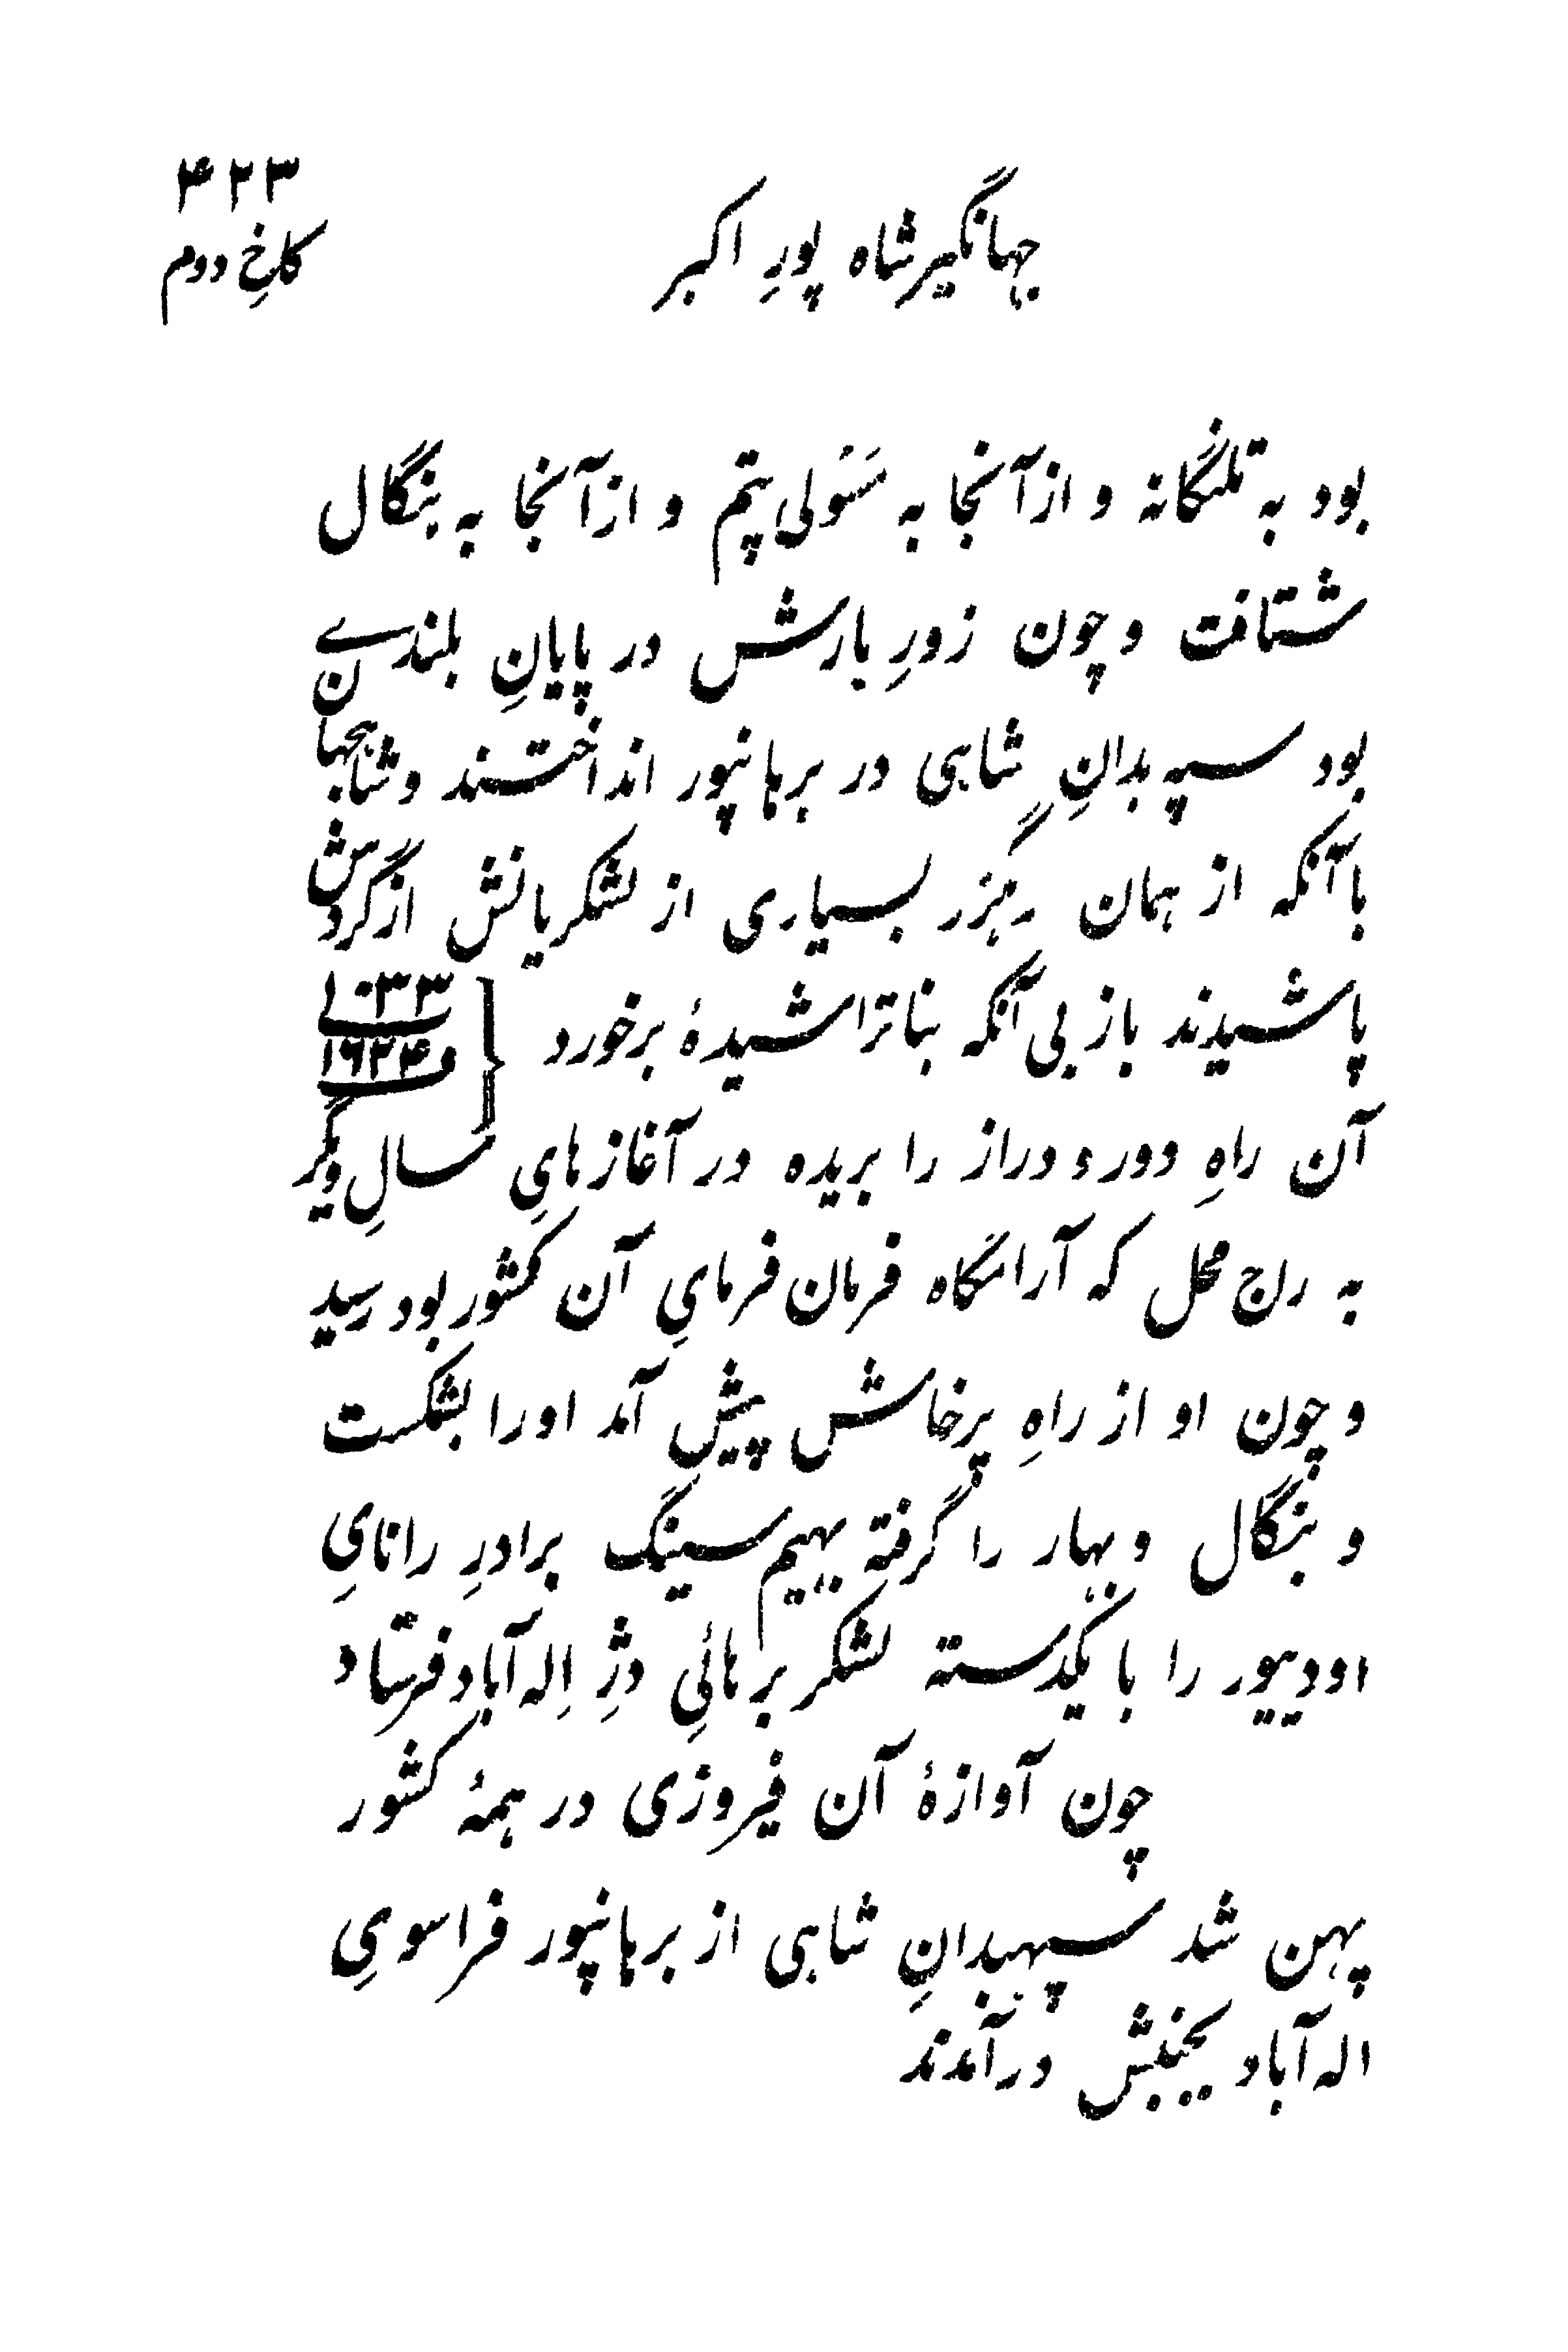 ۴۲۳
جهانگیرشاه پورِ اکبر
کاخِ دوم
بود به تلنگانه و ازآنجا به مَسَولی پتم و ازآنجا به بنگال
شتافت و چون زورِ بارش در پایانِ بلندے
بود سپه بدانِ شاهی در برهانپور انداختند و شاهجهان
باآنکه از همان رهگزر بسیاری از لشکریانش ازگردش
پاشیدند باز بی آنکه بناتراشیدهٔ برخورد { ۱۰۳۳ ۱۶۲۴
آن راهِ دور و دراز را بریده در آغازهایِ سالِ دیگر
به راج محل که آرامگاه فرمان فرمایِ آن کشور بود رسید
و چون او از راهِ پرخاش پیش آمد او را بشکست
و بنگال و بهار را گرفته بهیم سینگ برادرِ رانایِ
اودیپور را با یکدسته لشکر برهائیِ دژِ اِله آباد فرستاد
چون آوازهٔ آن فیروزی در همهٔ کشور
پهن شد سپهبدانِ شاهی از برهانپور فراسویِ
اله آباد بجنبش درآمدند